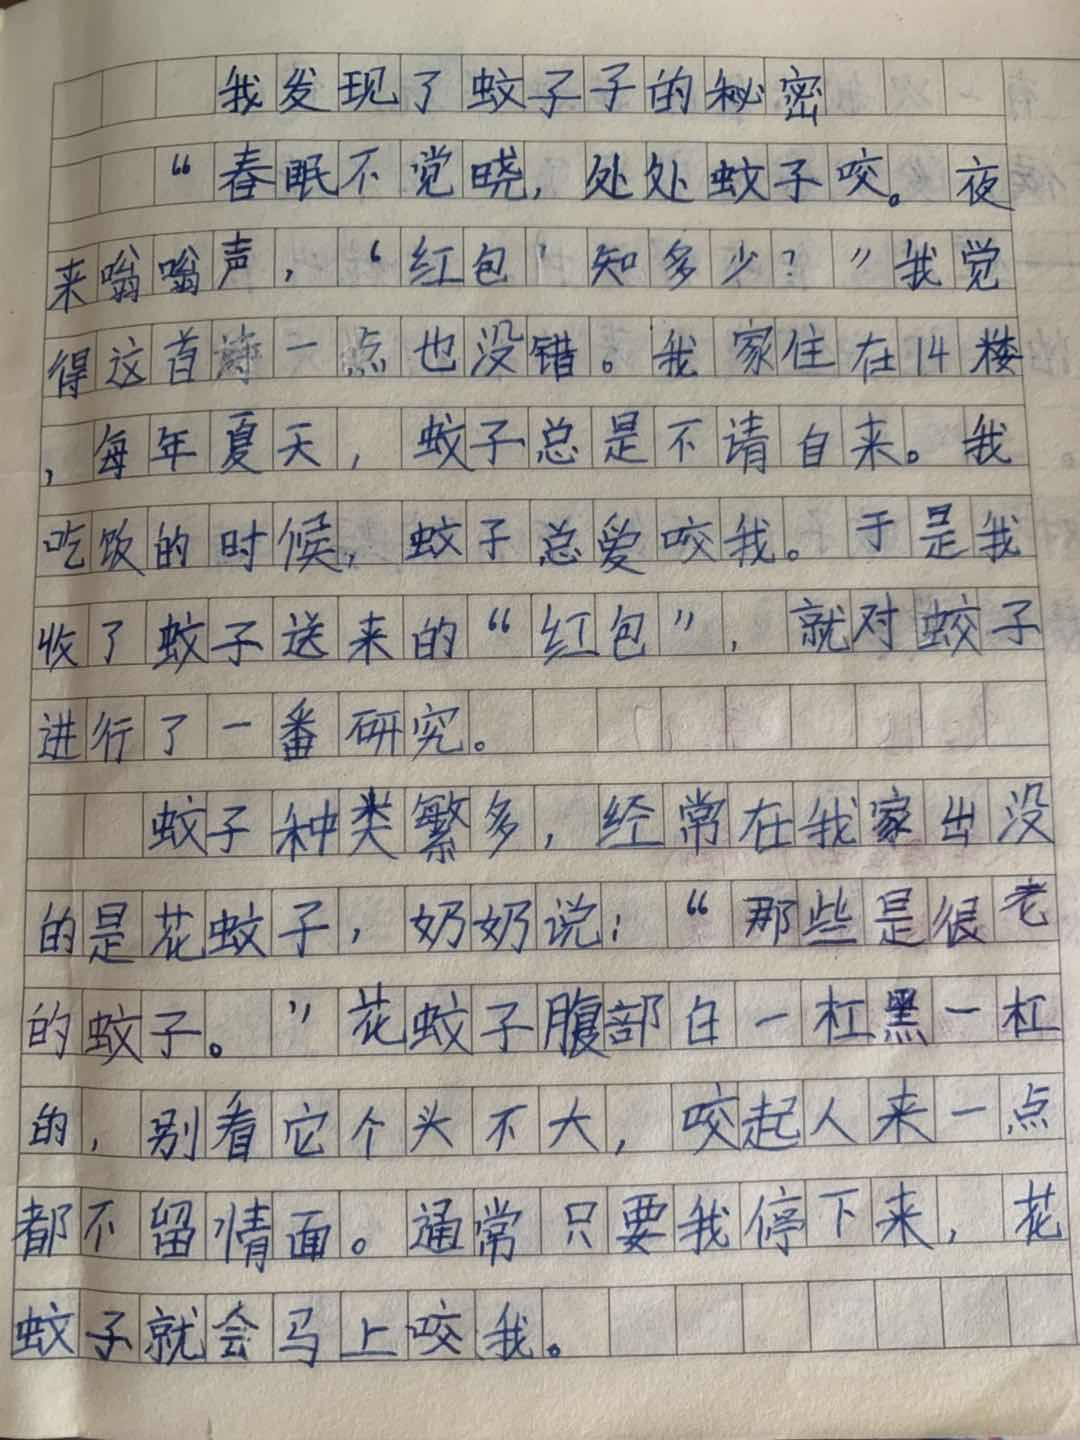 我发现了蚊子子的秘密
“春眠不觉晓，处处蚊子咬。夜
来嗡嗡声，‘红包’知多少？”我觉
得这首诗一点也没错。我家住在14楼
，每年夏天，蚊子总是不请自来。我
吃饭的时候，蚊子总爱咬我。于是我
收了蚊子送来的“红包”，就对蚊子
进行了一番研究。
蚊子种类繁多，经常在我家出没
的是花蚊子，奶奶说：“那些是很老
的蚊子。”花蚊子腹部白一杠黑一杠
的，别看它个头不大，咬起人来一点
都不留情面。通常只要我停下来，花
蚊子就会马上咬我。